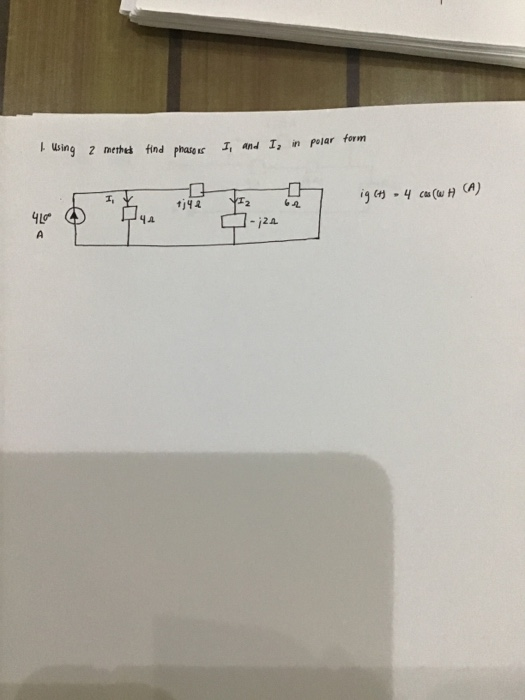 1. Using 2 methods find phasors I₁ and I₂ in polar form
ig(t) = 4 cos(wt) (A)
I₁
+j4Ω
I₂
6Ω
4∠0°
A
4Ω
-j2Ω